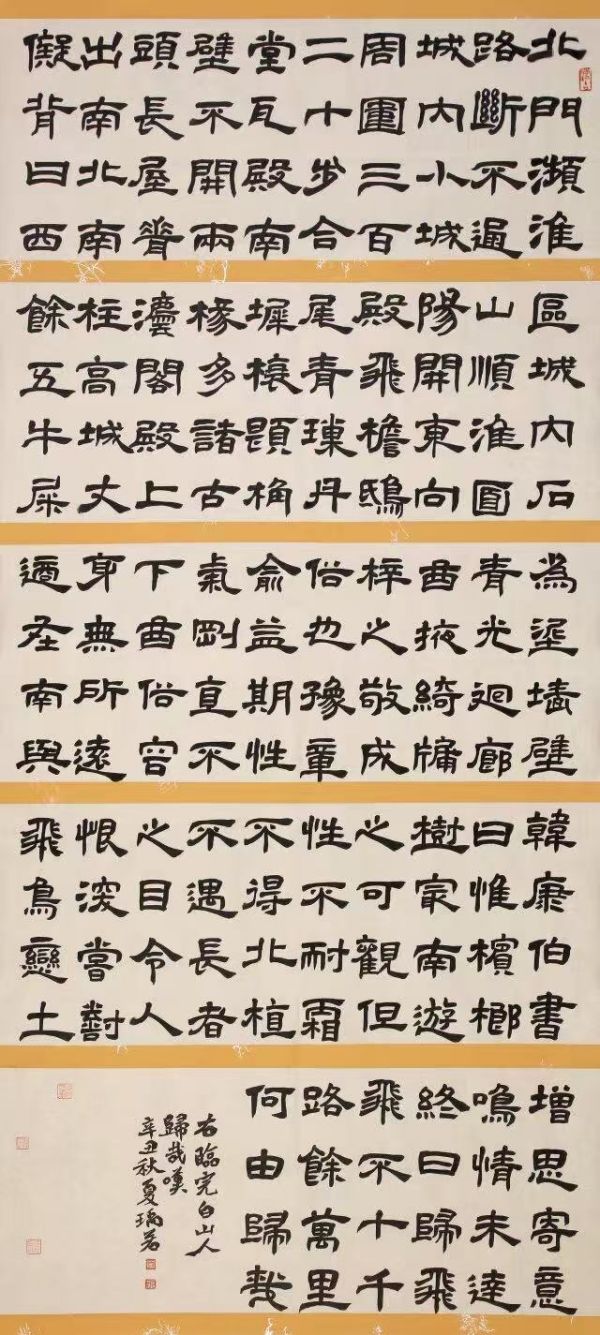 北門瀕淮
路斷不逼
城内小城
周圍三百
二十步合
堂瓦殿南
壁不開兩
頭長屋脊
出南北南
儗背日西
區城内石
山順淮面
陽開東向
殿飛檐鴟
尾青璅丹
墀榱題桷
椽多諸古
瀆閣殿上
柱高城丈
餘五牛屎
為埿墻壁
青光廻廊
曲掖綺牖
梓之敬成
俗也豫章
俞益期性
氣剛直不
下曲俗容
身無所遠
適在南與
韓康伯書
曰惟檳榔
樹最南遊
之可觀但
性不耐霜
不得北植
不遇長者
之目令人
恨深嘗對
飛鳥戀土
增思寄意
鳴情未達
終日歸飛
飛不十千
路餘萬里
何由歸哉
右臨完白山人
歸哉嘆
辛丑秋夏瑀若